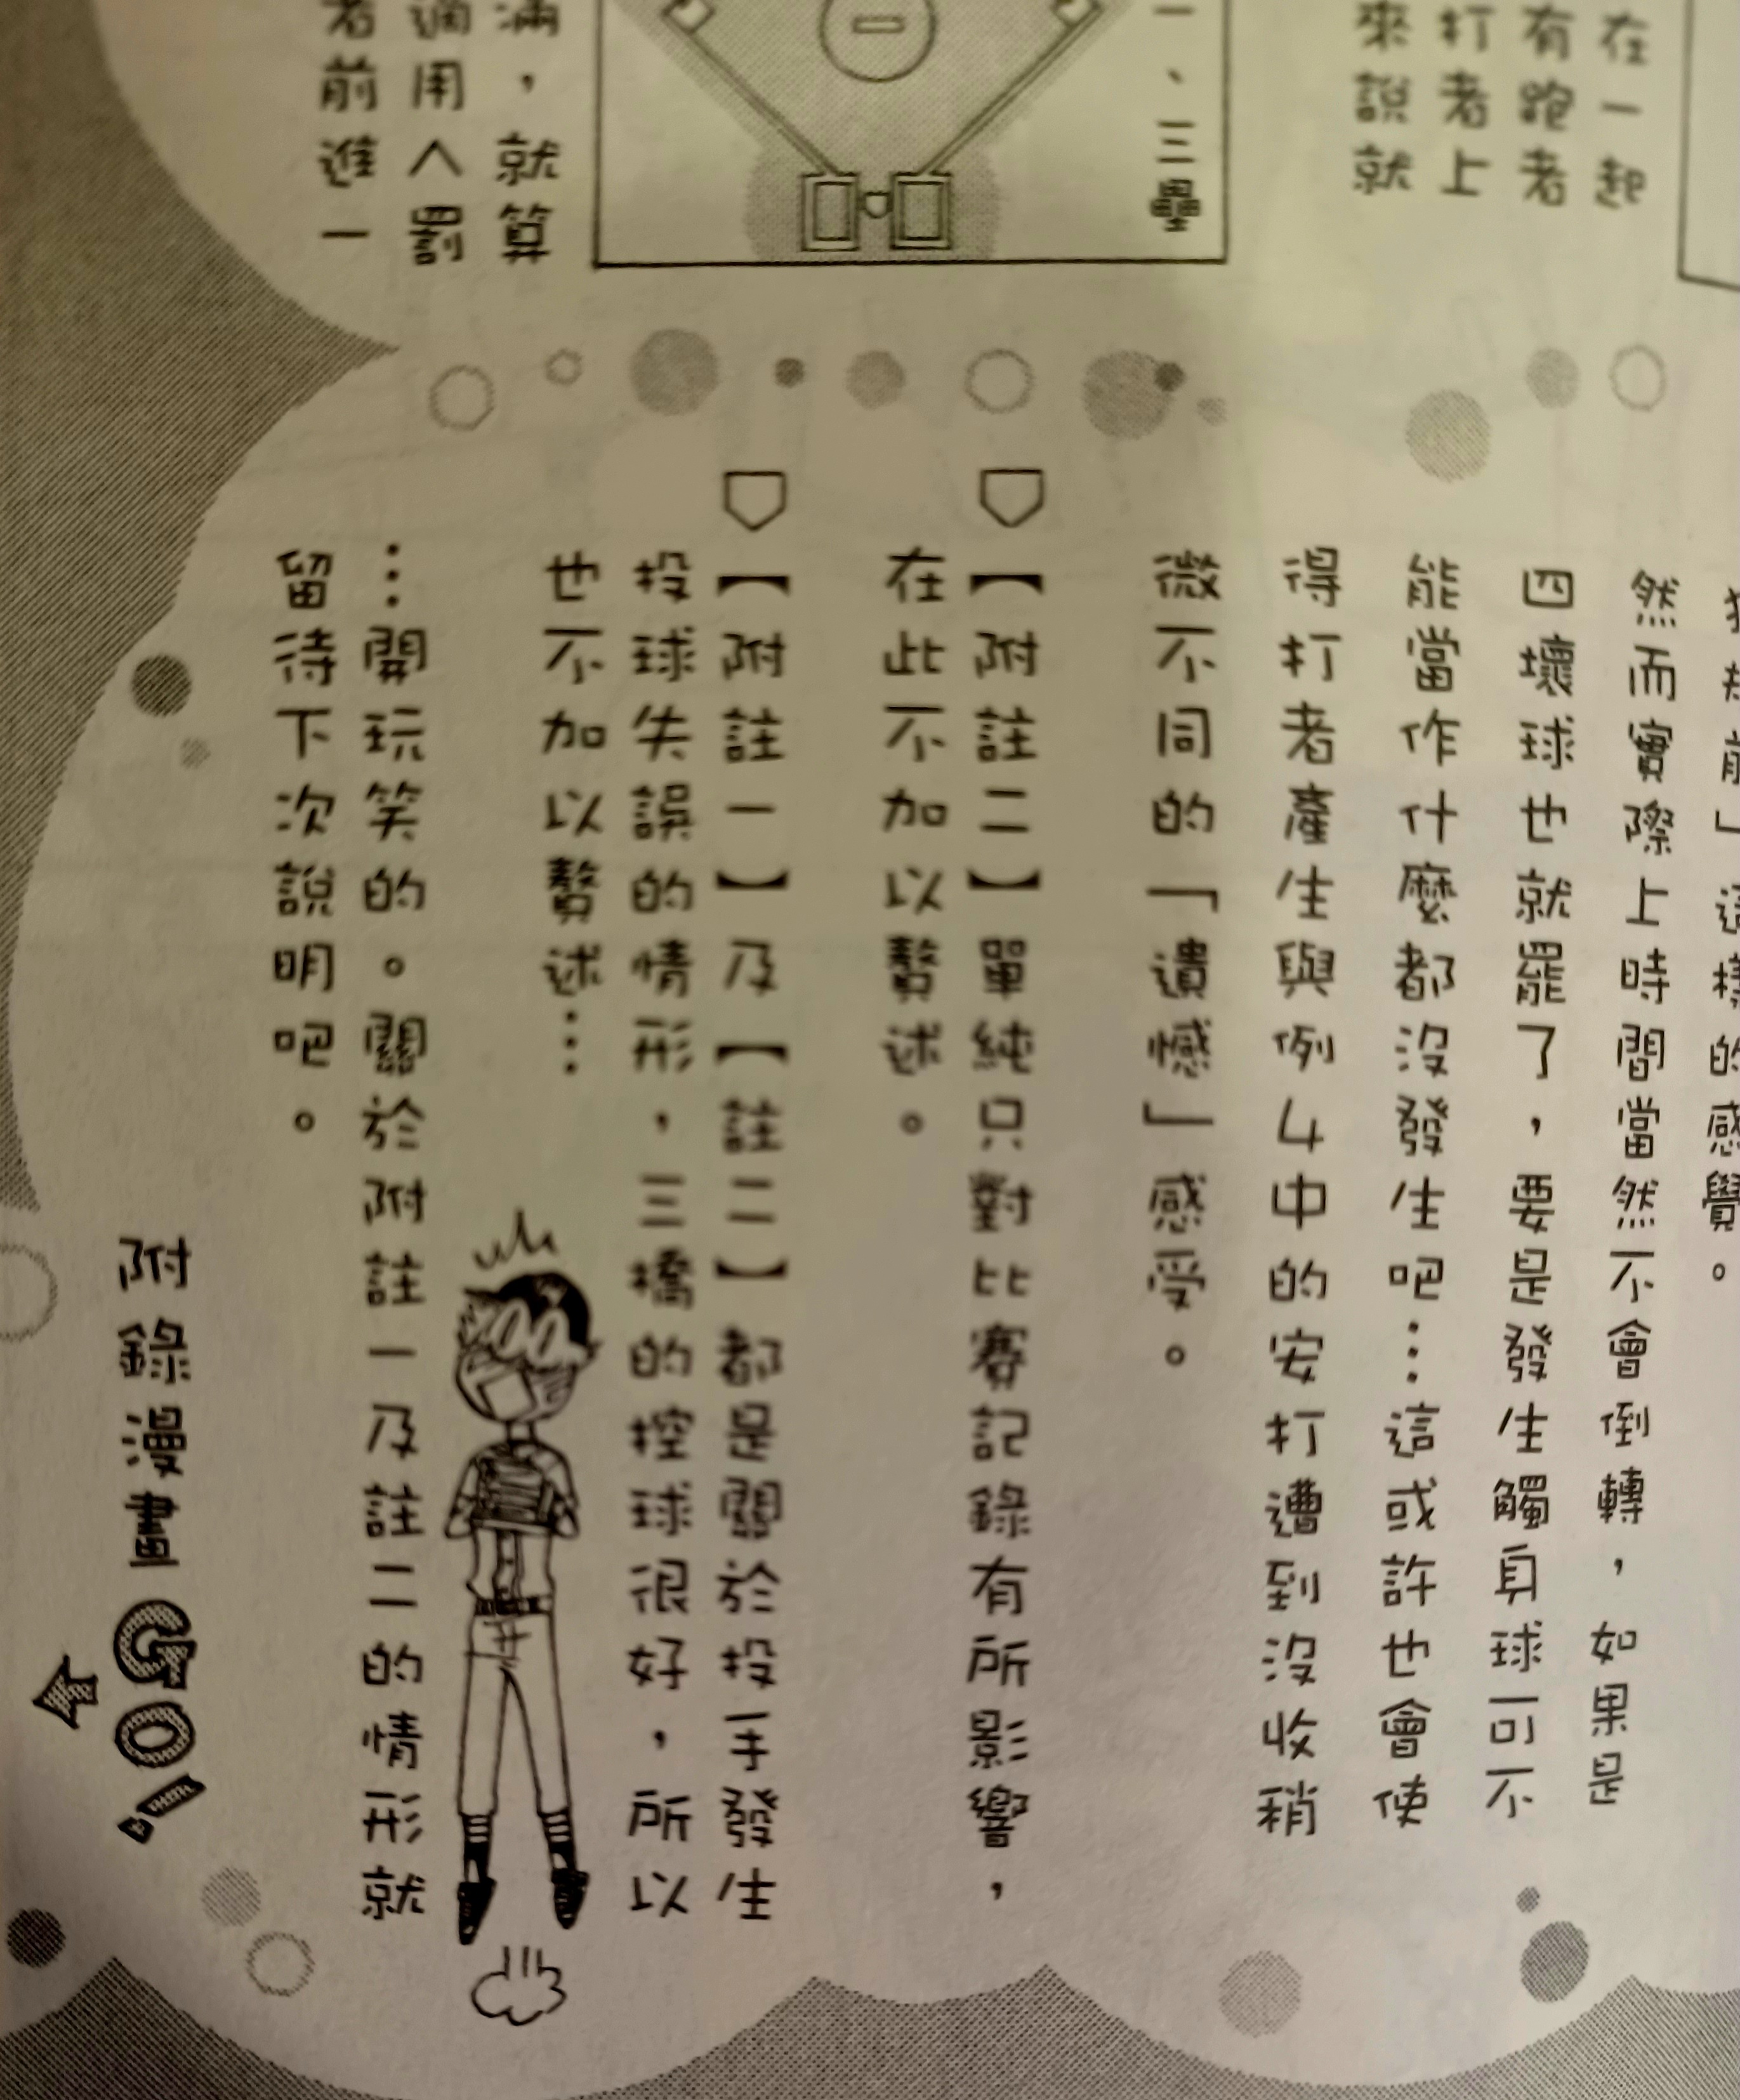 在一起
有跑者
打者上
來說就
一、三壘
滿，就算
適用人罰
者前進一
前」這樣的感覺。
然而實際上時間當然不會倒轉，如果是
四壞球也就罷了，要是發生觸身球可不
能當作什麼都沒發生吧…這或許也會使
得打者產生與例4中的安打遭到沒收稍
微不同的「遺憾」感受。
【附註二】單純只對比賽記錄有所影響，
在此不加以贅述。
【附註一】及【註二】都是關於投手發生
投球失誤的情形，三橋的控球很好，所以
也不加以贅述…
…開玩笑的。關於附註一及註二的情形就
留待下次說明吧。
附錄漫畫GO!